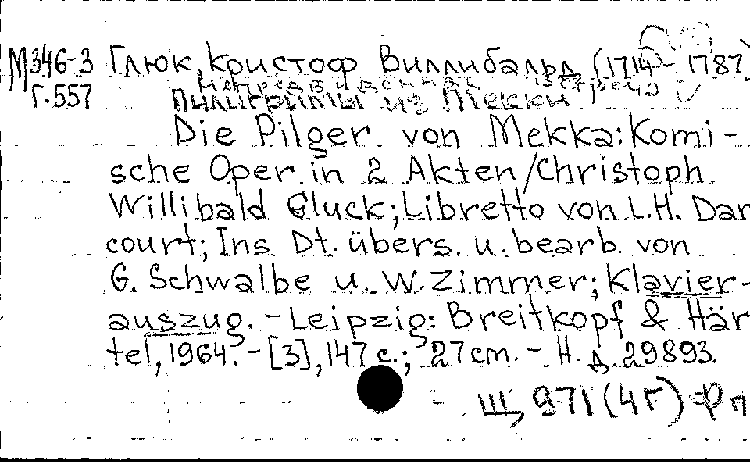 М346-3 Глюк, Кристоф Виллибальд (1714-1787)
Г.557 Пилигримы из Мекки
Die Pilger von Mekka: Komi-
sche Oper in 2 Akten/Christoph
Willibald Gluck; Libretto von L.H. Dan
court; Ins Dt. übers. u. bearb. von
G. Schwalbe u. W. Zimmer; Klavier-
auszug. - Leipzig: Breitkopf & Här
tel, 1964. - [3], 147 с.; 27 cm. - Н. д. 29893.
Щ 971(4Г)